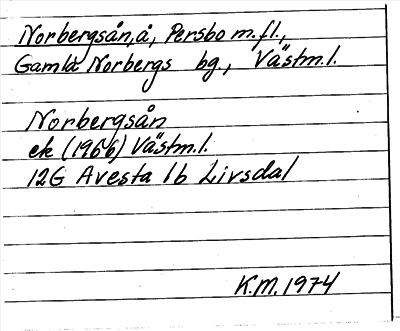 Norbergsån, å, Persbo m.fl.,
Gamla Norbergs bg., Västm.l.
Norbergsån
ek (1966) Västm.l.
12G Avesta 1b Livsdal
K.M. 1974